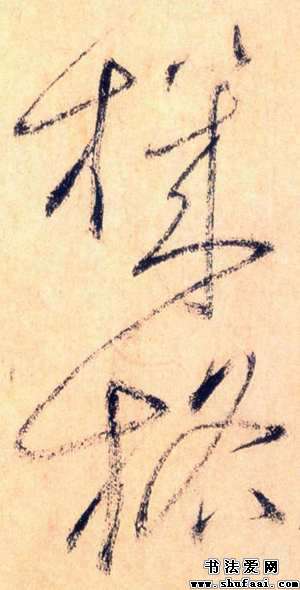 格
书法爱网
www.shufaai.com